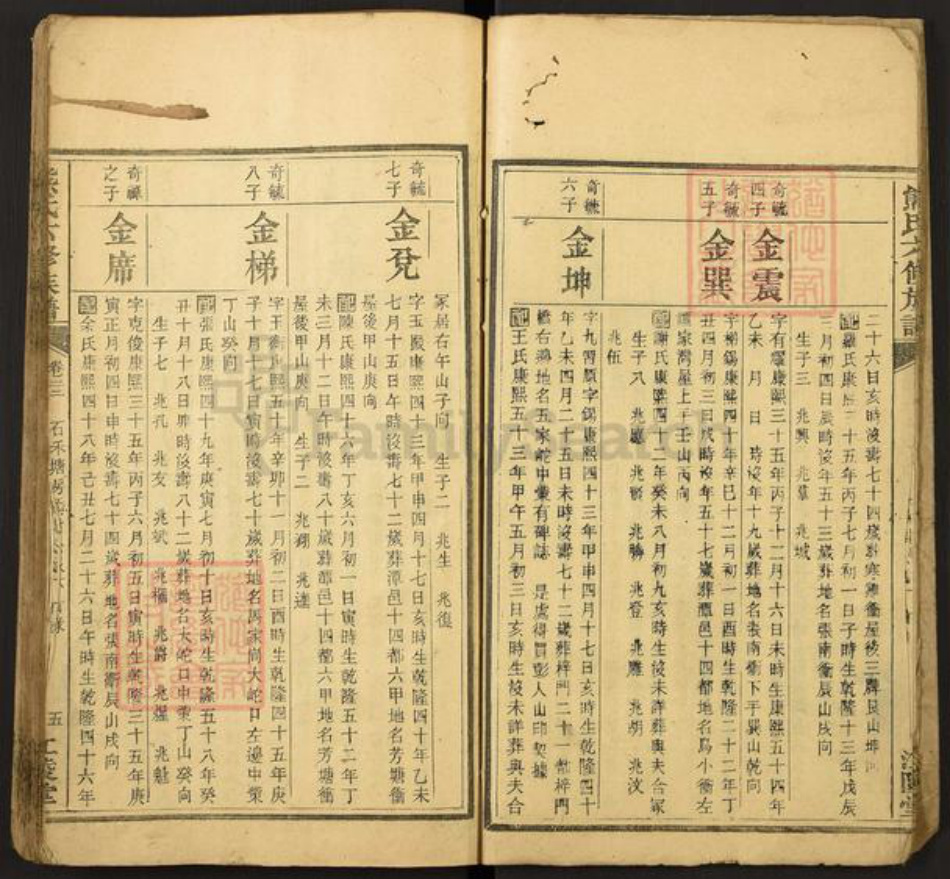 熊氏六修族譜
二十六日亥時沒壽七十四歲葬寒衝屋後三牌艮山坤向
配羅氏康熙二十五年丙子七月初一日子時生乾隆十三年戊辰
三月初四日辰時沒年五十三歲葬地名張南衝辰山戌向
生子三 兆興 兆羣 兆城
奇毓四子
金震
字有耀康熙三十五年丙子十二月十六日未時生康熙五十四年
乙未 月 日 時沒年十九歲葬地名張南衝下手巽山乾向
奇毓五子
金巽
字梯錫康熙四十年辛巳十二月初一日酉時生乾隆二十二年丁
丑四月初三日戌時沒年五十七歲葬潭邑十四都地名烏小衝左
家灣屋上手壬山丙向
配謝氏康熙四十二年癸未八月初九亥時生沒未詳葬與夫合冢
生子八 兆應 兆賢 兆騰 兆登 兆雕 兆朝 兆汶
兆伍
奇毓六子
金坤
字九習原字錫康熙四十三年甲申四月十七日亥時生乾隆四十
年乙未四月二十五日未時沒壽七十二歲葬梓門二十一都梓門
橋右邊地名五家蛇中 有碑誌 是處得買彭人山印契據
配王氏康熙五十三年甲午五月初三日亥時生沒未詳葬與夫合
冢居右午山子向 生子二 兆生 兆復
奇毓七子
金兌
字玉殿康熙四十三年甲申四月十七日亥時生乾隆四十年乙未
七月十五日午時沒壽七十二歲葬潭邑十四都六甲地名芳塘衝
屋後甲山庚向
配陳氏康熙四十六年丁亥六月初一日寅時生乾隆五十二年丁
未三月十二日午時沒壽八十歲葬潭邑十四都六甲地名芳塘衝
屋後甲山庚向 生子二 兆翔 兆達
奇毓八子
金梯
字玉衡康熙五十年辛卯十一月初二日酉時生乾隆四十五年庚
子十月十七日寅時沒壽七十歲葬地名馮家尚大蛇口左邊中策
丁山癸向
配張氏康熙四十九年庚寅七月初十日亥時生乾隆五十八年癸
丑十月十八日卯時沒壽八十二歲葬地名大蛇口中策丁山癸向
生子七 兆孔 兆友 兆斌 兆福 兆爵 兆握 兆魁
奇之子
金席
字克俊康熙三十五年丙子六月初五日寅時生乾隆三十五年庚
寅正月初四日申時沒壽七十四歲葬地名張南衝辰山戌向
配余氏康熙四十八年己丑七月二十六日午時生乾隆四十六年
熊氏六修族譜 卷三 石禾塘 五 江陵堂